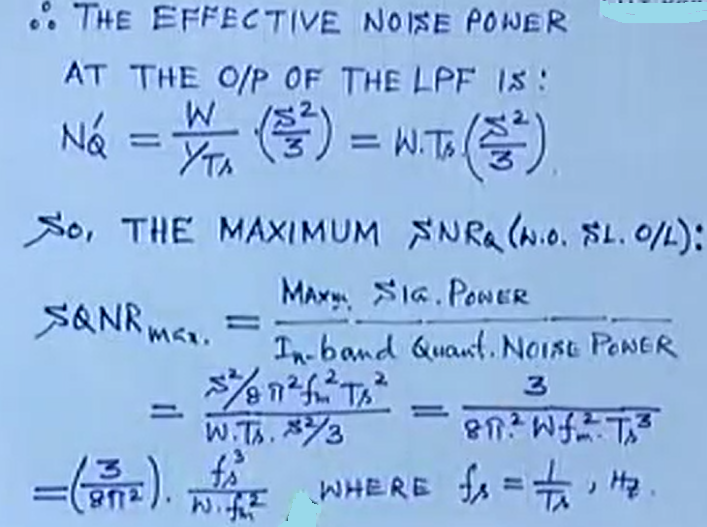 ∴ THE EFFECTIVE NOISE POWER
AT THE O/P OF THE LPF IS:
N'Q = W / (1/Ts) · (S²/3) = W.Ts (S²/3)
So, THE MAXIMUM SNRQ (W.O. SL. O/L):
SQNR max. = Maxm. SIG. POWER / In-band Quant. NOISE POWER
= (S²/8π²fm²Ts²) / (W.Ts. S²/3) = 3 / (8π² W fm² Ts³)
= (3/8π²) . fs³ / (W. fm²) WHERE fs = 1/Ts , Hz.